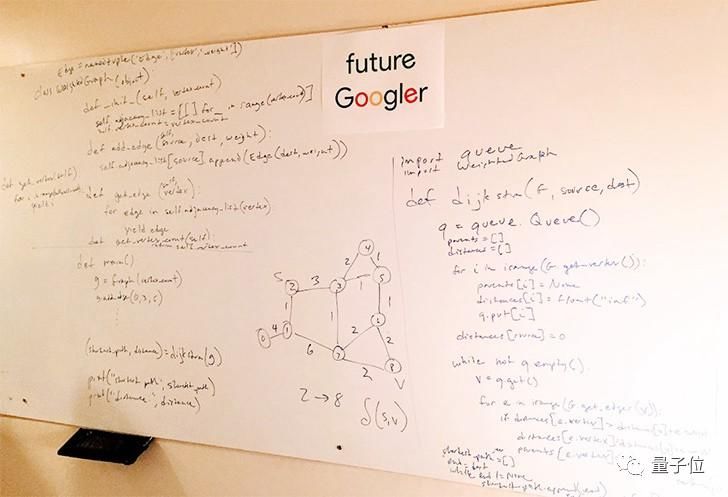 Edge = namedtuple('Edge', ['vertex', 'weight'])
class WeightedGraph(object):
def __init__(self, vertex_count)
self.adjacency_list = [[] for _ in range(vertex_count)]
self.vertex_count = vertex_count
def add_edge(self, source, dest, weight):
self.adjacency_list[source].append(Edge(dest, weight))
def get_vertex(self)
yield i
def get_edge(self, vertex):
for edge in self.adjacency_list(vertex)
yield edge
def get_vertex_count(self):
return self.vertex_count
def main()
g = Graph(vertex_count)
(shortest_path, distance) = dijkstra(g)
print("shortest path", shortest_path)
print("distance:", distance)
future
Googler
S
0
4
1
1
2
3
3
2
4
1
5
1
1
1
6
2
2
6
7
2
8
V
2 → 8
δ(s,v)
import queue
import WeightedGraph
def dijkstra(G, source, dest)
q = queue.Queue()
parents = []
distances = []
for i in irange(G.get_vertex()):
parents[i] = None
distances[i] = float("inf")
q.put[i]
distances[source] = 0
while not q.empty().
v = q.get()
for e in irange(G.get_edges(v)):
if distances[e.vertex] >
distances[e.vertex]
parents[e.vertex]
shortest_path = []
end = dest
while end != None
shortest_path.append(end)
量子位